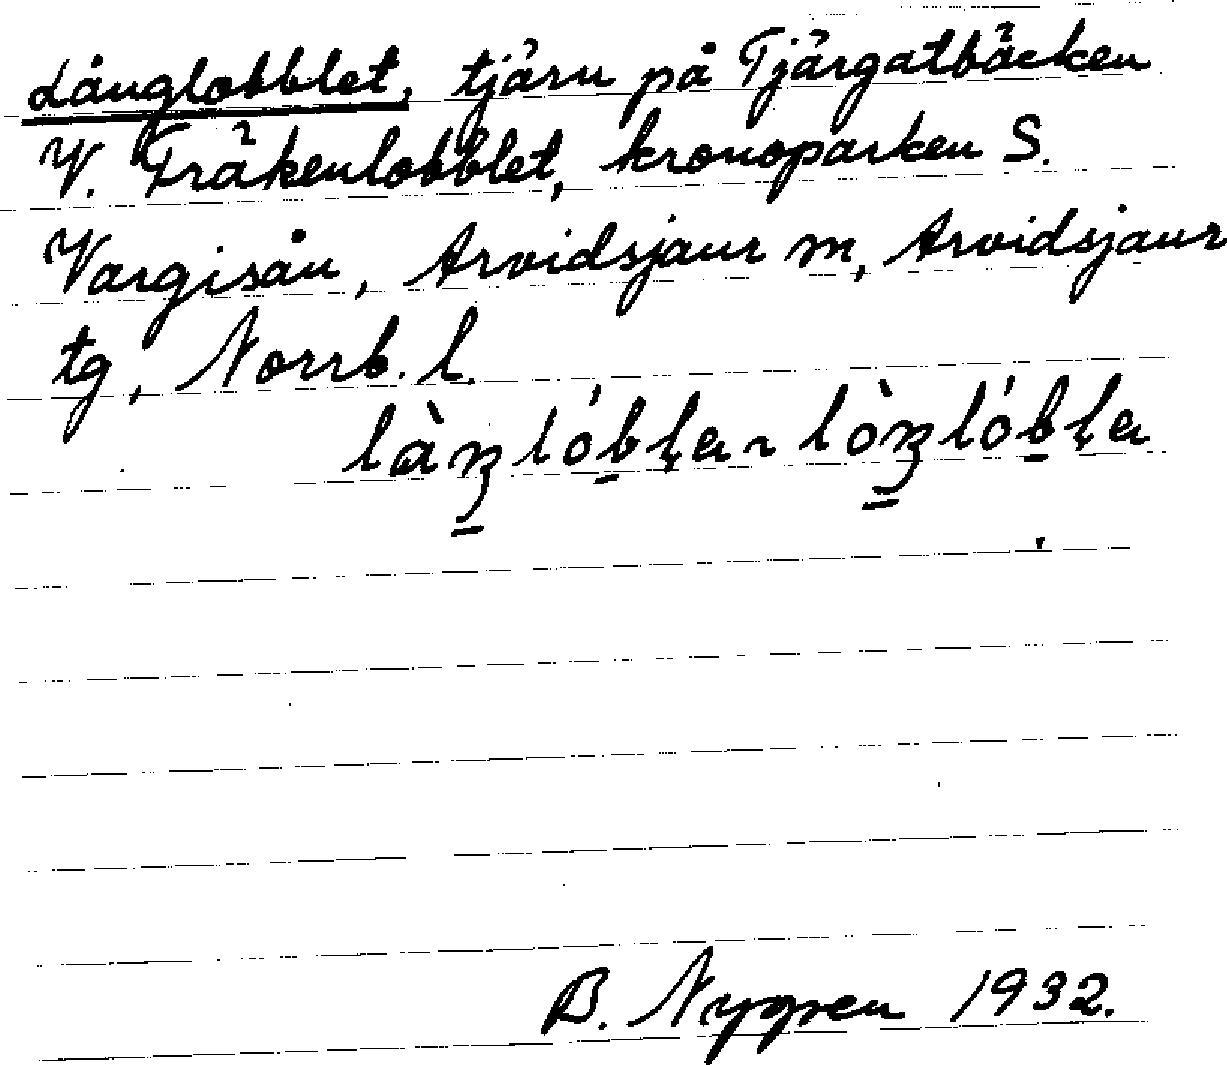 Långlobblet, tjärn på Tjärgatbäcken
V. Fräkenlobblet, kronoparken S.
Vargisån, Arvidsjaur sn, Arvidsjaur
tg, Norrb. l.
B. Nygren 1932.